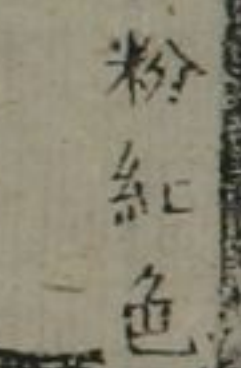 粉紅色